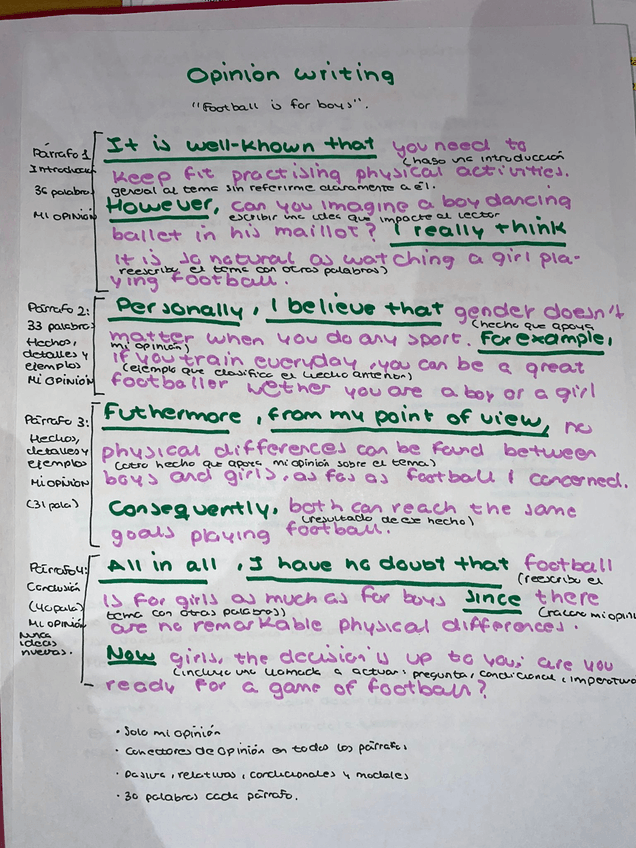 Opinion writing
"Football is for boys".
Párrafo 1
It is well-known that you need to
(hago una introducción
Introducción
keep fit practising physical activities.
36 palabras
general al tema sin referirme claramente a él.
However, can you imagine a boy dancing
Mi opinión
escribir una idea que impacte al lector
ballet in his maillot? I really think
it is so natural as watching a girl pla-
reescribo el tema con otras palabras)
ying football.
Párrafo 2:
Personally, I believe that gender doesn't
33 palabras
(hecho que apoya
Hechos,
matter when you do any sport. For example,
detalles y
mi opinión)
ejemplos
if you train everyday, you can be a great
(ejemplo que clasifica el hecho anterior)
Mi opinión
footballer wether you are a boy or a girl
Párrafo 3:
Futhermore, from my point of view, no
Hechos,
detalles y
physical differences can be fond between
ejemplos
(otro hecho que apoya mi opinión sobre el tema)
Mi opinión
boys and girls, as fas as football I concerned.
(31 pala)
Consequently, both can reach the same
(resultado de ese hecho)
goals playing football.
Párrafo 4:
All in all, I have no doubt that football
(reescribo el
Conclusión
is for girls as much as for boys since there
(40 pala)
tema con otras palabras)
(razono mi opin
Mi opinión
are no remarkable physical differences.
Nunca
ideas
nuevas.
Now girls, the decision is up to you; are you
(incluye una llamada a actuar: pregunta, condicional, imperativo
ready for a game of football?
· Solo mi opinión
· Conectores de opinión en todos los párrafos
· Pasiva, relativos, condicionales y modales
· 30 palabras cada párrafo.